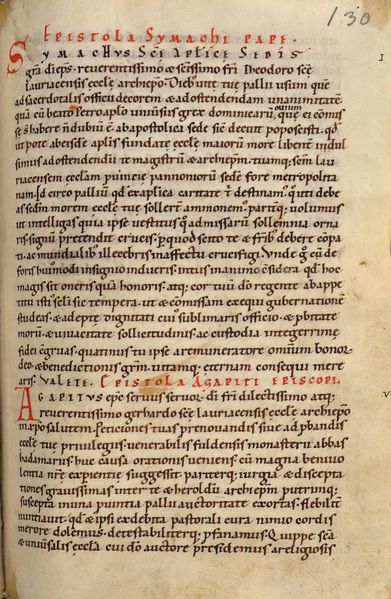 130
EPISTOLA SYMACHI PAPE.
SYMACHVS SCE APLICE SEDIS
gra dieps. reuerentissimo & scissimo fri Theodoro sce
lauriacensis eccle archiepo. Diebuit te pallii usum que
ad sacerdotalis officii decorem & ad ostendendam unanimitate
qua cu beato Petro aplo uniuersus grex dominicaru ouium que ei comis
se s habere n dubiu e. ab apostolica sede sic decuit poposcisti. qd
ut pote ab eisde aplis fundate eccle maioru more libent indul
simus ad ostendendu te magistru & archiepm. tuamq; scam lau
riacensem ecclam puincie pannonioru sede fore metropolita
nam. Id circo palliu qd ex aplica caritate t destinam. q uti debe
as sedm morem eccle tue sollert ammonem. pariterq; uolumus
ut intelligas quia ipse uestitus q ad missaru sollemnia orna
ris. signu pretendit crucis. p quod scito te & frib debere copa
ti. ac mundialib illecebris in affectu crucifigi. Vnde q cu de
foris huiusmodi insignio indueris. intus in animo csidera. qd hoc
magis sit oneris qua honoris. atq; cor tuu do regente ab appe
titu isti scli sic tempera. ut & comissam exequi gubernatione
studeas. & adepte dignitati cui sublimaris officio. & pbitate
moru. & uiuacitate sollicitudinis. ac custodia integerrime
fidei cgruas. quatinus tu ipse a remuneratore omnium bonor
deo. & benedictionis gram. uitamq; eternam consequi mere
aris. VALETE. EPISTOLA AGAPITI EPISCOPI.
AGAPITVS epc seruus seruor di fri dilectissimo atq;
reuerentissimo gerhardo sce lauriacensis eccle archiepo
in xpo salutem. Peticiones tuas prenouandis siue adpbandis
eccle tue priuilegiis. uenerabilis fuldensis monasterii abbas
hadamarus huc causa orationis ueniens. cu magna beniuo
lentia nre expientie suggessit. pariterq; iurgia & discepta
tiones grauissimas inter te & heroldu archiepm. putrunq;
suscepta in una puintia pallii auctoritate exortas. flebilit
nuntiauit. qd & ipsi ex debita pastorali cura nimio cordis
merore dolemus. detestabiliterq; pfanamus. Quippe sca
& uniuersalis eccla cui do auctore presidemus a religiosis